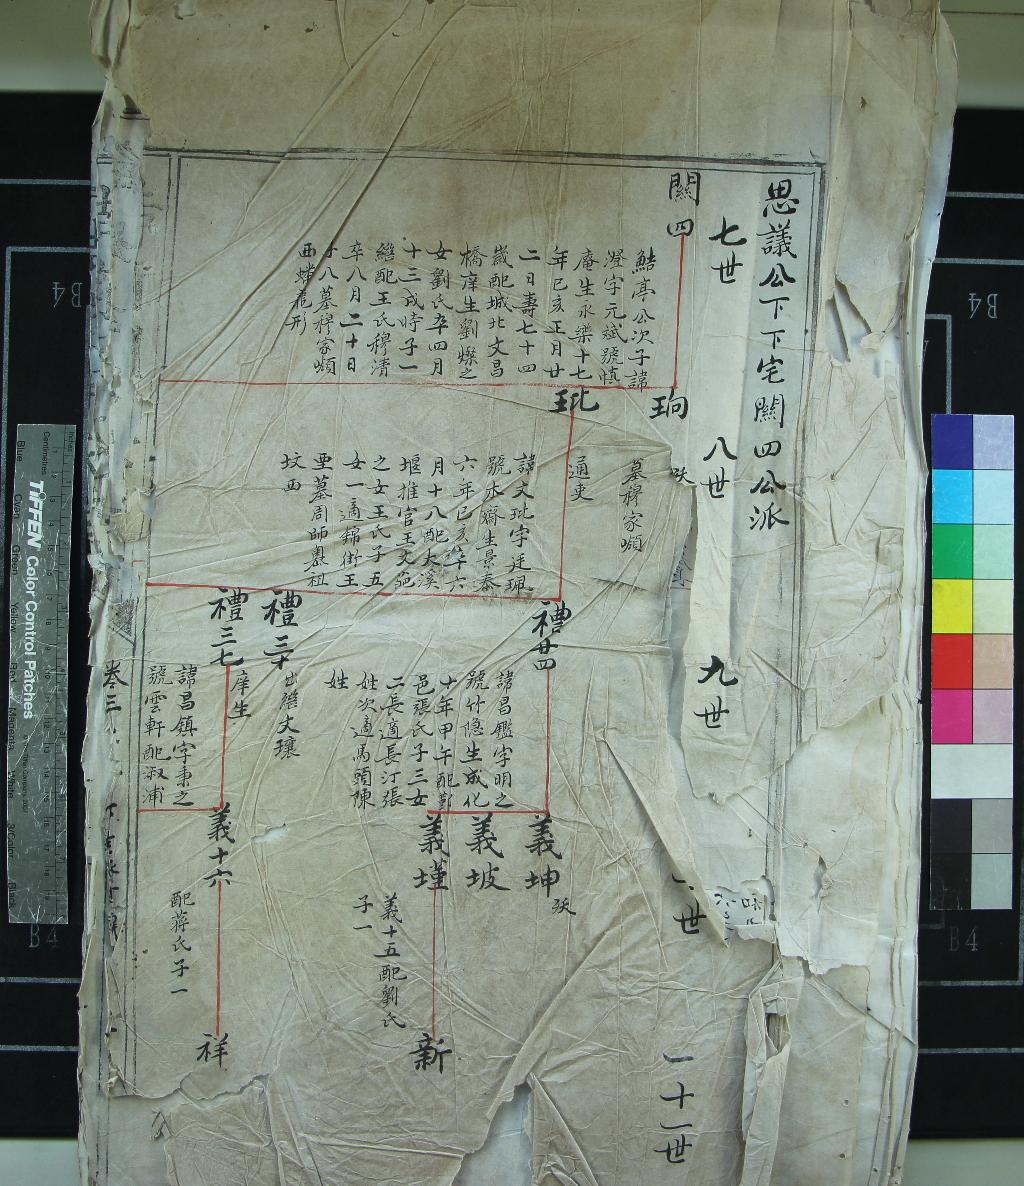 思議公下下宅關四公派
七世
八世
九世
世
十一世
關四
鮚亭公次子諱
澄字元斌號慎
庵生永樂十七
年己亥正月廿
二日壽七十四
歲配城北文昌
橋庠生劉燦之
女劉氏卒四月
十三戌時子一
繼配王氏穆清
卒八月二十日
十八墓穆家㘽
西蟠龍形
珦
玭
殀
墓穆家㘽
通吏
諱文玭字廷珮
號木齋生景泰
六年己亥卒六
月十八配大溪
堰推官王文
之女王氏子五
女一適錦街王
墓周師祖
坟西
禮廿四
禮三十
禮三七
諱昌鑑字明之
號竹隐生成化
十年甲午配鄞
邑張氏子三女
二長適長汀張
姓次適馬頭陳
姓
出繼文瓌
庠生
諱昌鎮字秉之
號雲軒配淑浦
義坤
義坡
義墐
義十六
殀
義十五配劉氏
子一
配蔣氏子一
新
祥
卷三
B4
B4
B4
B4
TIFFEN Color Control Patches
Centimetres
Inches
Blue
Cyan
Green
Yellow
Red
Magenta
White
3/Color
Black